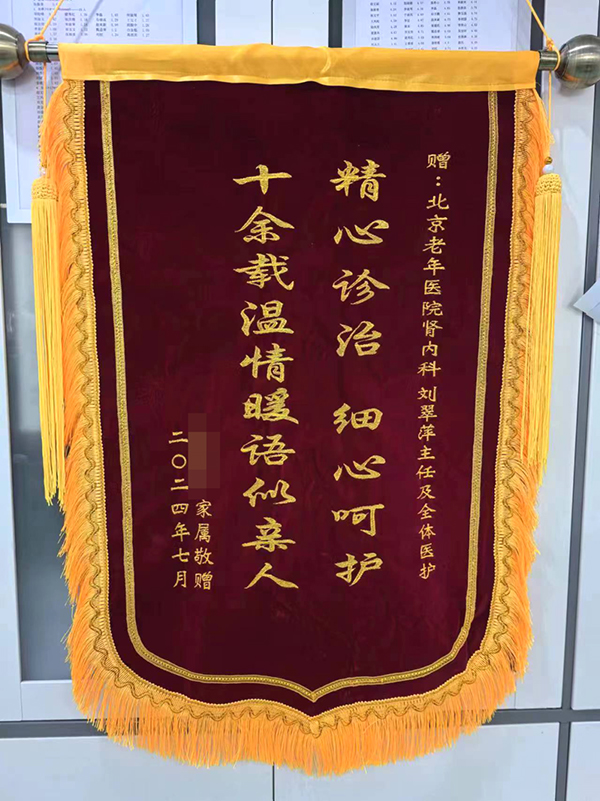 赠：北京老年医院肾内科 刘翠萍主任及全体医护
精心诊治 细心呵护
十余载温情暖语似亲人
家属敬赠
二〇二四年七月